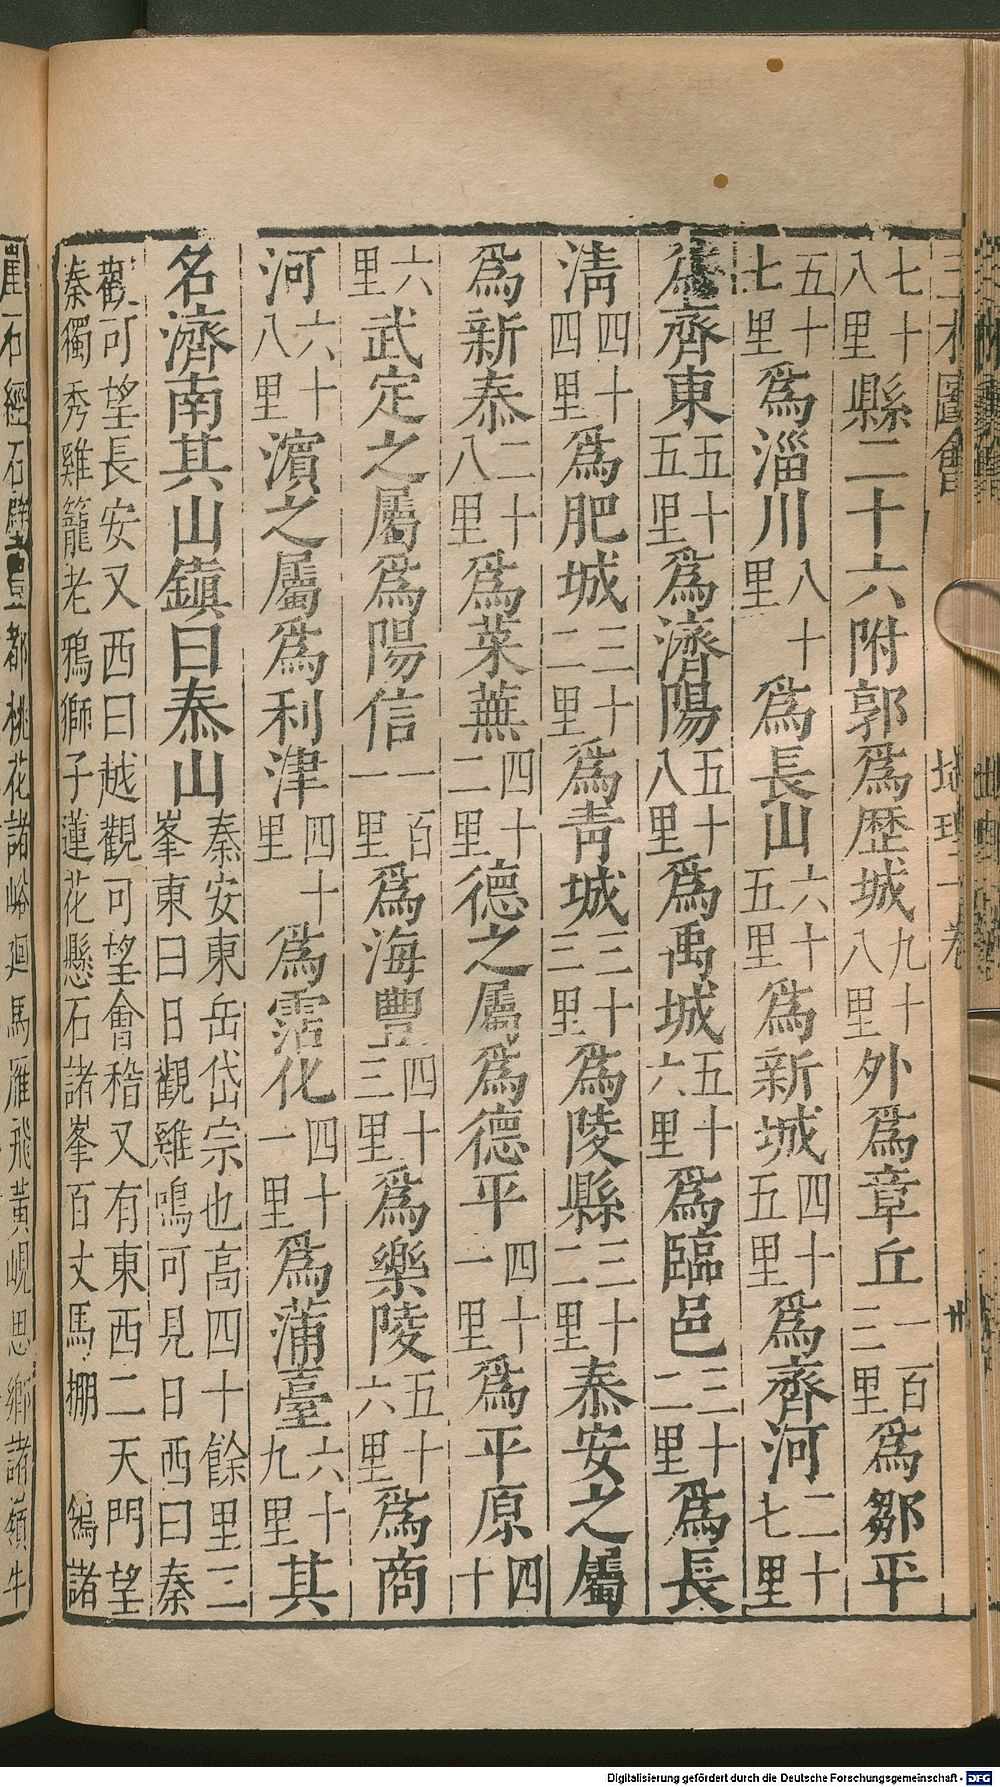 三才圖會 地理 卷 廿
七十八里縣二十六附郭爲歷城九十八里外爲章丘一百三里爲鄒平
五十七里爲淄川八十里爲長山六十五里爲新城四十五里爲齊河二十七里
爲齊東五十五里爲濟陽五十八里爲禹城五十六里爲臨邑三十二里爲長
清四十四里爲肥城三十二里爲靑城三十三里爲陵縣三十二里泰安之屬
爲新泰二十八里爲萊蕪四十二里德之屬爲德平四十一里爲平原四十
六里武定之屬爲陽信一百一里爲海豐四十三里爲樂陵五十六里爲商
河六十八里濱之屬爲利津四十里爲霑化四十一里爲蒲臺六十九里其
名濟南其山鎮曰泰山
泰安東岳岱宗也高四十餘里三
峯東曰日觀雞鳴可見日西曰秦
觀可望長安又西曰越觀可望會稽又有東西二天門望
秦獨秀雞籠老鴉獅子蓮花懸石諸峯百丈馬棚鵓諸
崖石經石壁都桃花諸峪廻馬雁飛黃峴思鄉諸嶺牛
Digitalisierung gefördert durch die Deutsche Forschungsgemeinschaft - DFG